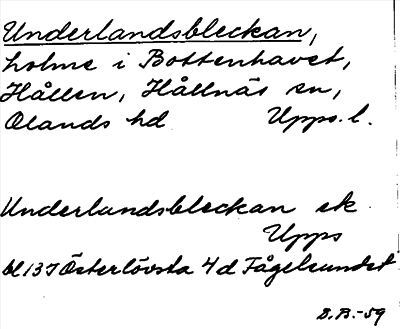 Underlandsbleckan,
holme i Bottenhavet,
Hållen, Hållnäs sn,
Olands hd Upps. l.
Underlandsbleckan ek
Upps
bl 137 Österlövsta 4d Fågelsundet
B.B.-59